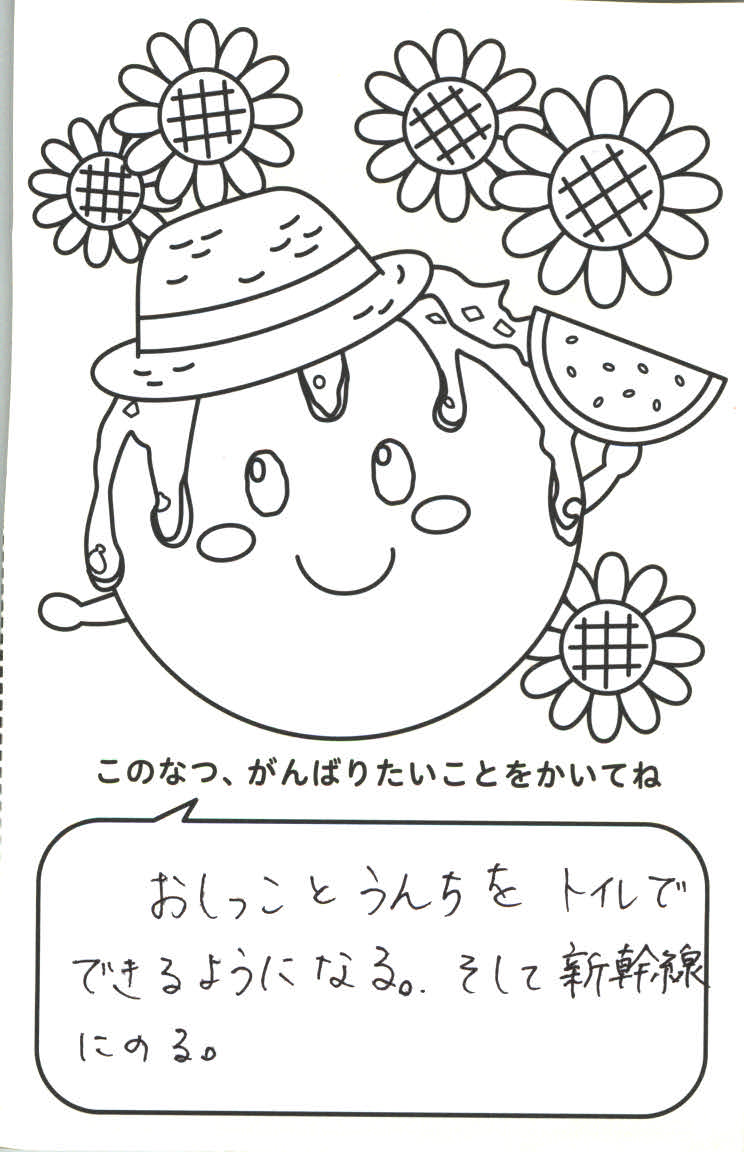 このなつ、がんばりたいことをかいてね
おしっことうんちを トイレで
できるようになる。そして新幹線
にのる。